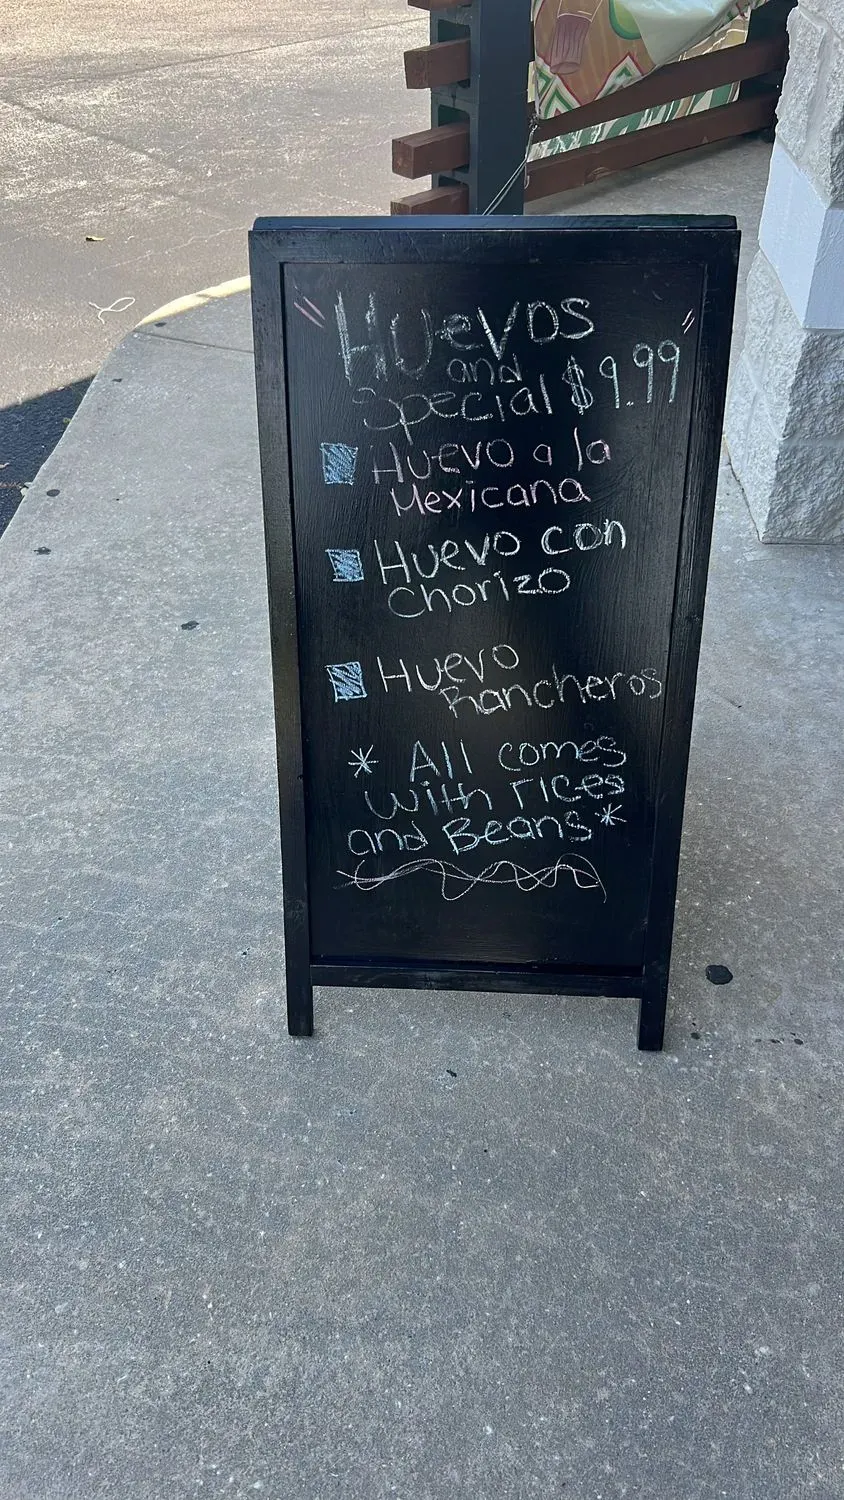 "Huevos"
and
Special $9.99
Huevo a la
Mexicana
Huevo con
Chorizo
Huevo
Rancheros
* All comes
with rices
and Beans *